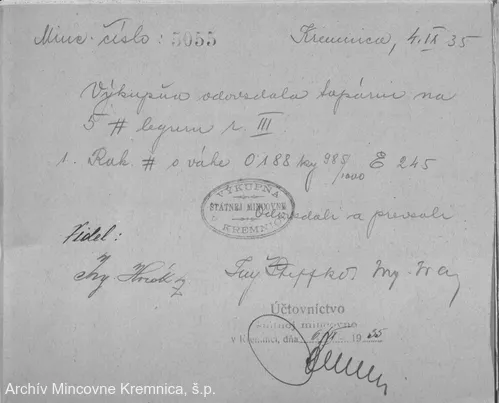 Minc. číslo: 5055
Kremnica, 4.IX 35
Výkupňa odovzdala tavárni na
5 # legrem z. III
1. Rak. # o váhe 0'188 kg 985/1000 E 245
VÝKUPŇA
ŠTÁTNEJ MINCOVNE
KREMNICA
Odovzdali a prevzali
Videl:
Účtovníctvo
štátnej mincovne
v Kremnici, dňa 1935
Archív Mincovne Kremnica, š.p.